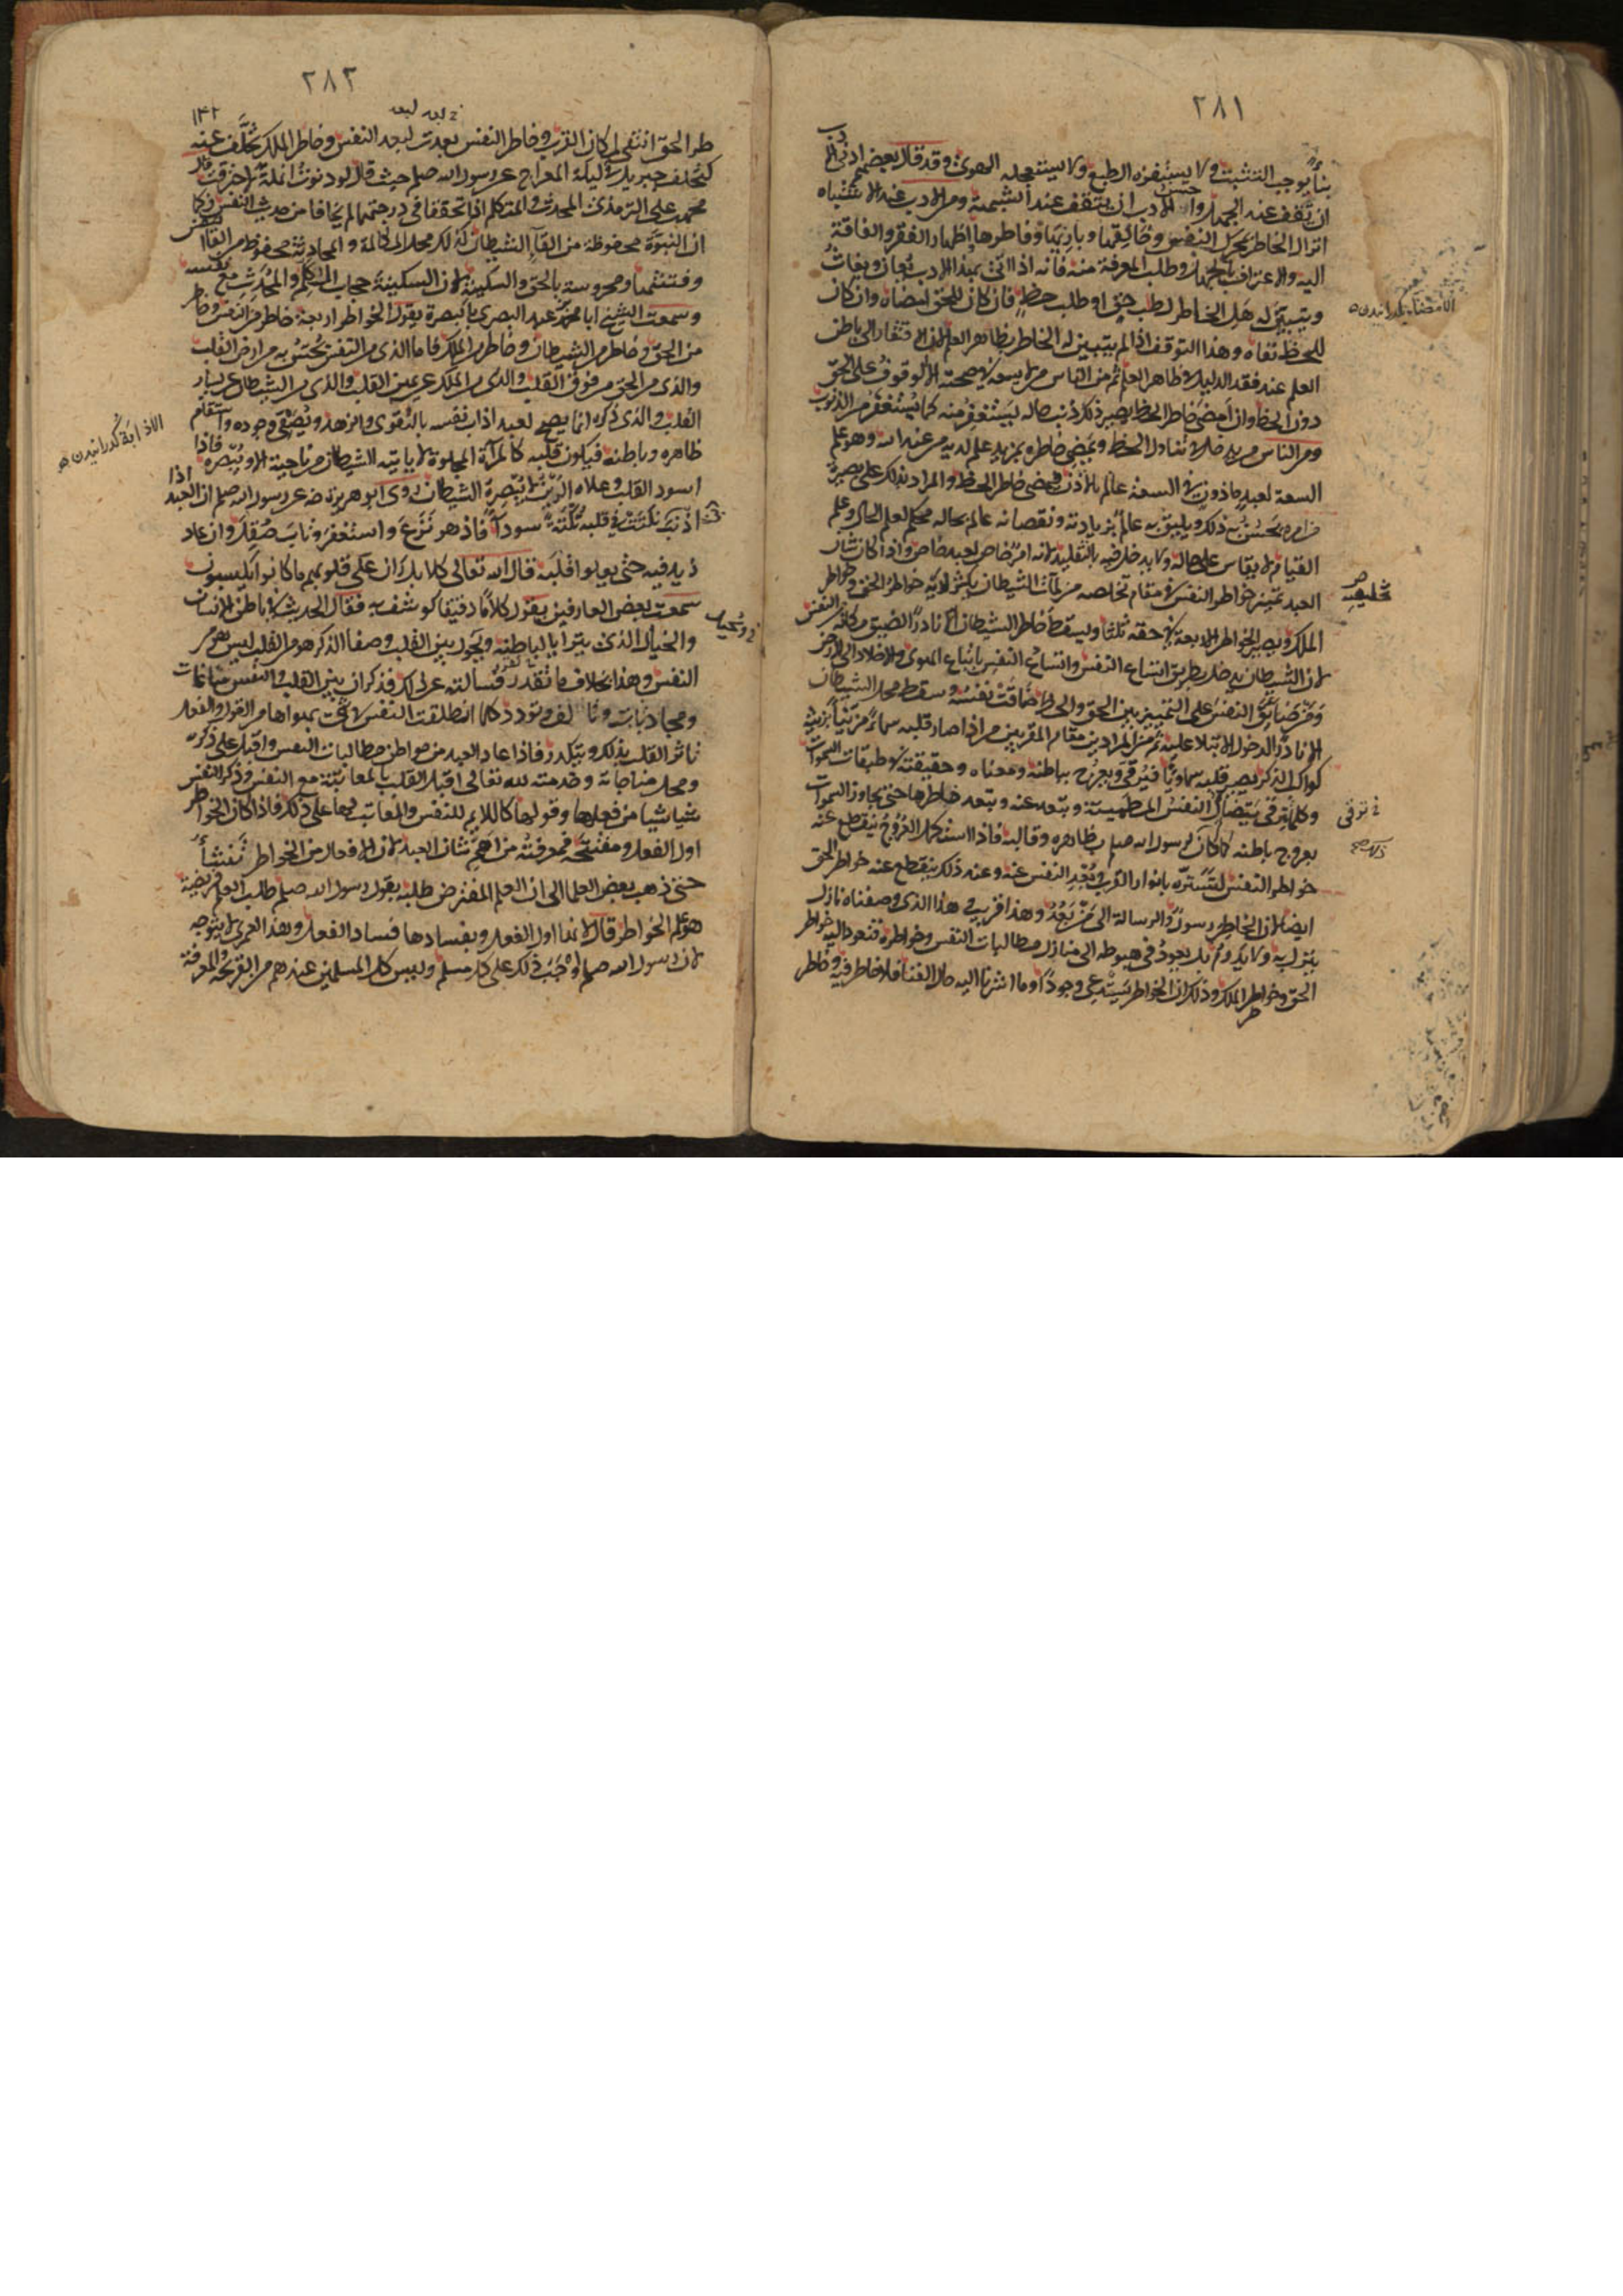 ٢٨١
بناءً يوجب التثبت ولا يستفزه الطبع ولا يستعجله الهوى وقد قال بعضهم ادنى الادب
ان تقف عند الجهل واحسن الادب ان يتقف عند الشبهة ومن الادب عند الاشتباه
انزال الخاطر بمحرك النفس وخالقها وباريها وفاطرها اظهار الفقر والفاقة
اليه والاعتراف بالجهل وطلب المعرفة منه فانه اذا اتى بهذا الادب يعان ويغاث
ويتبين له هل الخاطر لطلب حق او طلب حظ فان كان للحق امضاه وان كان
للحظ نفاه وهذا التوقف اذا لم يتبين له الخاطر بظاهر العلم لان الافتقار الى باطن
العلم عند فقد الدليل في ظاهر العلم ثم من الناس من لا يسعه في صحته الا الوقوف على الحق
دون الحظ وان امضى خاطر الحظ يصير ذلك ذنب حاله فيستغفر منه كما يستغفر من الذنوب
ومن الناس من يدخل في تناول الحظ ويمضي خاطره بمزيد علم لديه من عند الله وهو علم
السعة لعبد ماذون في السعة عالم بالاذن فيمضي خاطر الحظ والمراد بذلك على بصيرة
من امره يحسن به ذلك ويليق به عالم بزيادته ونقصانه عالم بحاله محكم لعلم الحال وعلم
القيام لا يقاس على حاله ولا يدخل فيه بالتقليد لانه امر خاص لعبد خاص واذا كان شان
العبد تمييز خواطر النفس في مقام تخلصه من لمات الشيطان يكثر لديه خواطر الحق وخواطر
الملك ويصير الخواطر الاربعة في حقه ثلثا ويسقط خاطر الشيطان الا نادرا لضيق مكانه من النفس
لان الشيطان يدخل بطريق اتساع النفس واتساع النفس باتباع الهوى والاخلاد الى الارض
ومن ضايق النفس على التمييز بين الحق والحظ ضاقت نفسه وسقط محل الشيطان
الا نادرا لدخول الابتلاء عليه ثم من المرادين مقام المقربين من اذا صار قلبه سماء مزينا بزينة
كواكب الذكر يصير قلبه سماويا فيترقى ويعرج بباطنه ومعناه وحقيقته في طبقات السموات
وكلما ترقى يتضاءل النفس المطمئنة ويبعد عنه ويبعد خاطرها حتى يجاوز السموات
بعروج باطنه كما كان لرسول الله صلم بظاهره وقالبه فاذا استكمل العروج ينقطع عنه
خواطر النفس لتستره بانوار القرب وبعد النفس عنه وعند ذلك ينقطع عنه خواطر الحق
ايضا لان الخاطر رسول والرسالة الى من بعد وهذا قريب في هذا الذي وصفناه نازل
ينزل به ولا يدوم بل يعود في هبوطه الى منازل مطالبات النفس وخواطره فتعود اليه خواطر
الحق وخواطر الملك وذلك ان الخواطر يستدعي وجودا وما اشرنا اليه حال الفنا فلا خاطر فيه وخاطر
الامضا گذرانيدن
خ ترقى
٢٨٢
١٤٢
طر الحق انتفى لمكان القرب وخاطر النفس بعدت لبعد النفس وخاطر الملك تخلف عنه
كتخلف جبريل في ليلة المعراج عن رسول الله صلم حيث قال لو دنوت انملة لاحترقت قال
محمد علي الترمذي المحدث والمتكلم اذا تحققا في درجتهما لم يخافا من حديث النفس فكما
ان النبوة محفوظة من القاء الشيطان كذلك محل المكالمة والمحادثة محفوظ من القاء النفس
وفتنتها ومحروسة بالحق والسكينة لان السكينة حجاب المتكلم والمحدث مع نفسه
وسمعت الشيخ ابا محمد عبد البصري بالبصرة يقول الخواطر اربعة خاطر من النفس وخاطر
من الحق وخاطر من الشيطان وخاطر من الملك فاما الذي من النفس يحس به من ارض القلب
والذي من الحق من فوق القلب والذي من الملك عن يمين القلب والذي من الشيطان عن يسار
القلب والذي ذكره انما يصح لعبد اذاب نفسه بالتقوى والزهد وتصفى وجوده واستقام
ظاهره وباطنه فيكون قلبه كالمرآة المجلوة لا ياتيه الشيطان من ناحية الا ويبصره فاذا
اسود القلب وعلاه الرين لا يبصره الشيطان روى ابو هريرة رضه عن رسول الله صلم ان العبد اذا
اذنب نكتت في قلبه نكتة سوداء فاذ هو نزع واستغفر وتاب صقل وان عاد
زيد فيه حتى يعلو قلبه قال الله تعالى كلا بل ران على قلوبهم ما كانوا يكسبون
سمعت بعض العارفين يقول كلاما دقيقا كوشف به فقال الحديث في باطن الانسان
والخيال الذي يتراءى لباطنه ويجول بين القلب وصفاء الذكر هو من القلب ليس هو من
النفس وهذا بخلاف ما تقدر فسالته عن ذلك فذكر ان بين القلب والنفس مناغات
ومحادثات وتالف وتودد كلما انطلقت النفس في شيء بهواها من القول والفعل
تاثر القلب بذلك ويتكدر فاذا عاد العبد من مواطن مطالبات النفس واقبل على ذكره
ومحل مناجاته وخدمته لله تعالى اقبل القلب بالمعاتبة مع النفس وذكر النفس
شيا شيا من فعلها وقولها كاللايم للنفس والمعاتب لها على ذلك فاذا كان الخواطر
اول الفعل ومفتتحه فمعرفته من اهم شان العبد لان الافعال من الخواطر تنشأ
حتى ذهب بعض العلما الى ان العلم المفترض طلبه بقول رسول الله صلم طلب العلم فريضة
هو علم الخواطر قال لانها اول الفعل وبفسادها فساد الفعل وهذا لعمري لا يتوجه
لان رسول الله صلم اوجب ذلك على كل مسلم وليس كل المسلمين عندهم من القريحة والمعرفة
الاذابة گدرانيدن